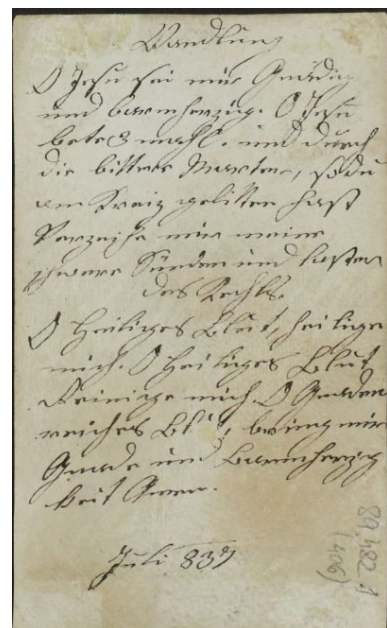 Wandlung
O Jesu sei mir Gnädig
und barmherzig. O Jesu
bete 3 mahl. und durch
die bittere Marter, so du
am Kreiz gelitten hast
Verzeihe mir meine
schwere Sünden und laster
des Kechls.
O Heiliges Blut, heilige
mich. O heiliges Blut
Reinige mich. O Gnaden
reiches Blut, bring mir
Gnade und Barmherzig
keit Amen.
Juli 837
89,482 1
(406)